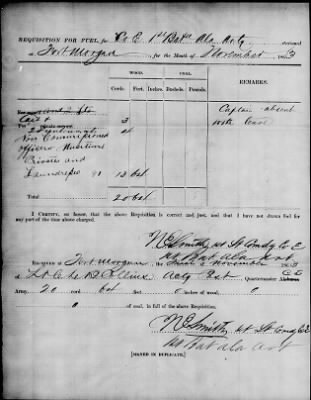 REQUISITION FOR FUEL for Co E 1st Batn Ala Arty stationed
at Fort Morgan for the Month of November 1863
WOOD. COAL.
Cords. Feet. Inches. Bushels. Pounds. REMARKS.
Capt 3 Captain absent
2 Lieutenants 4 with leave
Non Commissioned
officers Musicians
Privates and
Laundresses 91 13
Total 20
I CERTIFY, on honor, that the above Requisition is correct and just, and that I have not drawn fuel for
any part of the time above charged.
N E Smith 1st Lt Comdg Co E
1st Bat Ala Art
RECEIVED at Fort Morgan November 1863
of Lt Actg Quartermaster C S
Army, 20 cord feet 0 inches wood, 0
0 of coal, in full of the above Requisition.
N E Smith 1st Lt Comdg Co E
1st Bat Ala Art
[SIGNED IN DUPLICATE.]